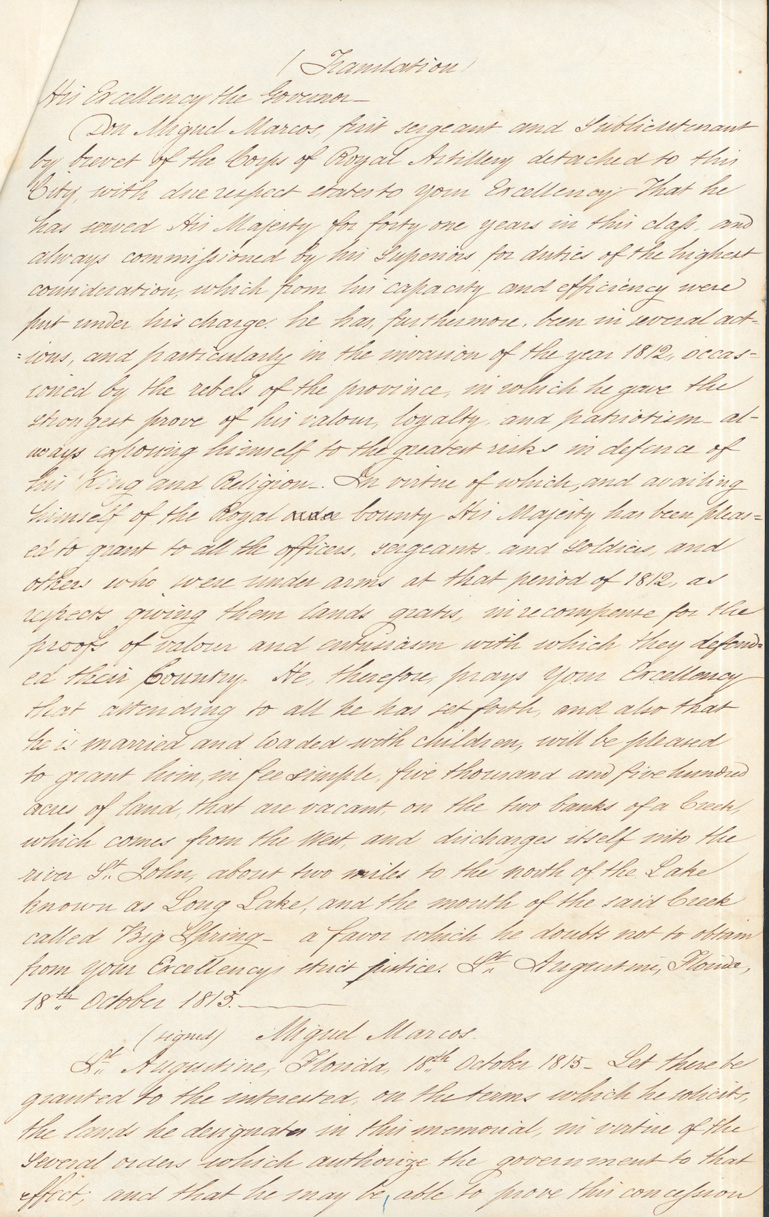 (Translation)
His Excellency the Governor—
Don Miguel Marcos, first sergeant and Sublieutenant
by brevet of the Corps of Royal Artillery detached to this
City, with due respect states to your Excellency That he
has served His Majesty for forty one years in this class, and
always commissioned by his Superiors for duties of the highest
consideration, which from his capacity and efficiency were
put under his charge: he has, furthermore, been in several act-
=ions, and particularly in the invasion of the year 1812, occas=
ioned by the rebels of the province, in which he gave the
strongest prove of his valour, loyalty, and patriotism— al-
ways exposing himself to the greatest risks in defence of
his King and Religion—. In virtue of which, and availing
himself of the Royal bounty His Majesty has been pleas=
ed to grant to all the officers, sergeants, and soldiers, and
others who were under arms at that period of 1812, as
respects giving them lands gratis, in recompense for the
proofs of valour and entusiasm with which they defend-
ed their Country. He, therefore, prays your Excellency
that attending to all he has set forth, and also that
he is married and loaded with children, will be pleased
to grant him, in fee simple, five thousand and five hundred
acres of land, that are vacant, on the two banks of a Creek,
which comes from the West, and discharges itself into the
river St. John, about two miles to the north of the Lake
known as Long Lake, and the mouth of the said Creek
called Big Spring— a favor which he doubts not to obtain
from your Excellency's strict justice. St. Augustine, Florida,
18th October 1815.
(signed) Miguel Marcos.
St. Augustine, Florida, 18th October 1815— Let there be
granted to the interested, on the terms which he solicits,
the lands he designates in this memorial, in virtue of the
several orders which authorize the government to that
effect; and that he may be able to prove this concession